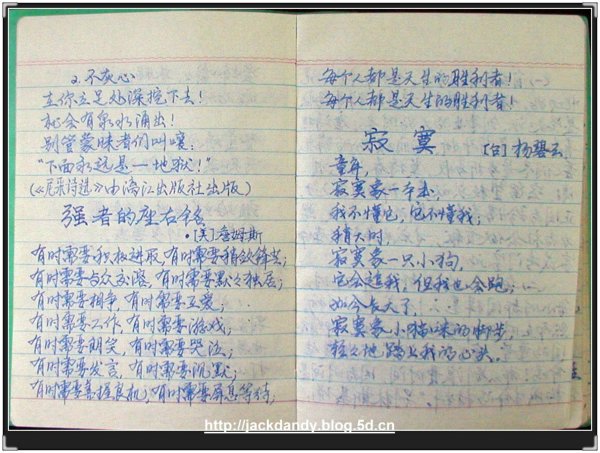 2.不灰心
在你立足处深挖下去!
就会有泉水涌出!
别管蒙昧者们叫嚷:
"下面永远是—地狱!"
(《尼采诗选》由漓江出版社出版)
强者的座右铭
·[美]詹姆斯
有时需要积极进取,有时需要稍敛锋芒;
有时需要与众交溶,有时需要默々独居;
有时需要相争,有时需要互爱;
有时需要工作,有时需要游戏;
有时需要朗笑,有时需要哭泣;
有时需要发言,有时需要沉默;
有时需要握良机,有时需要屏息等待;
每个人都是天生的胜利者!
每个人都是天生的胜利者!
寂寞 [台]杨碧云
童年,
寂寞象一本书,
我不懂它,它不懂我;
稍大时,
寂寞象一只小狗,
它会追我,但我也会跑;
如今长大了,
寂寞象小猫咪的脚步,
轻々地踏上我的心头.
http://jackdandy.blog.5d.cn